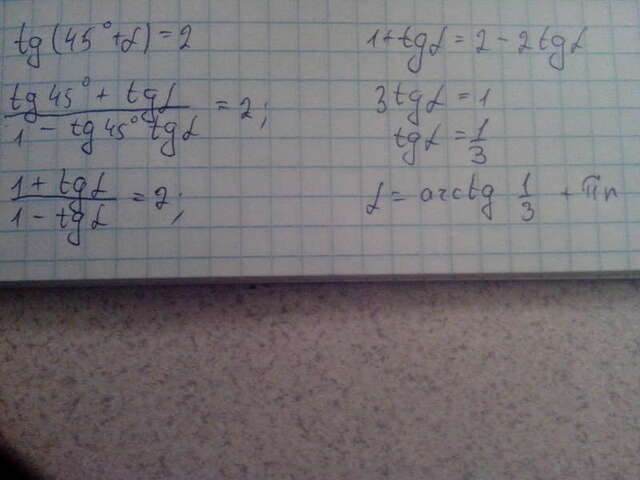 tg(45°+α)=2
(tg 45° + tgα)/(1 - tg 45° tgα) = 2;
(1 + tgα)/(1 - tgα) = 2;
1+tgα = 2 - 2tgα
3tgα = 1
tgα = 1/3
α = arctg 1/3 + πn